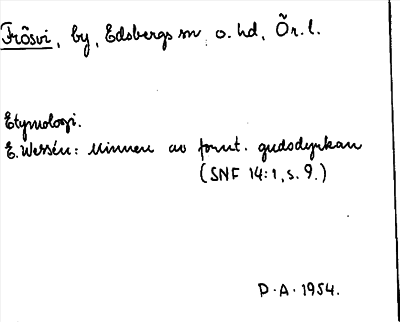 Frösvi, by, Edsbergs sn o. hd, Ör. l.
Etymologi.
E. Wessén: Minnen av fornt. gudsdyrkan
(SNF 14:1, s. 9.)
P. A. 1954.